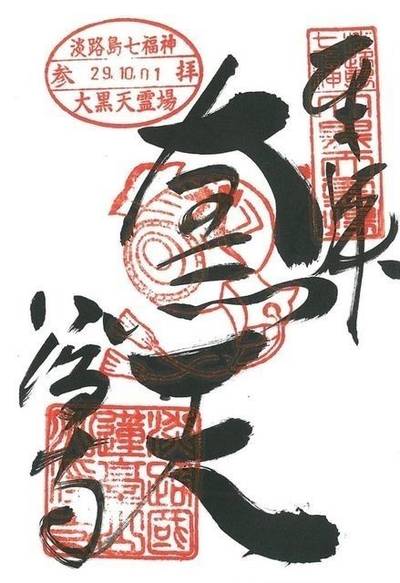 淡路島七福神
参 29.10.01 拝
大黒天霊場
奉拝
大黒天
八浄寺
淡路國